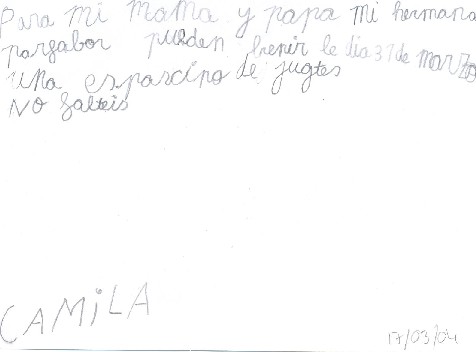 Para mi mama y papa mi hermana
porfabor pueden benir le dia 31 de marzo
una esposcino de jugtes
No falteis
CAMiLA
17/03/04